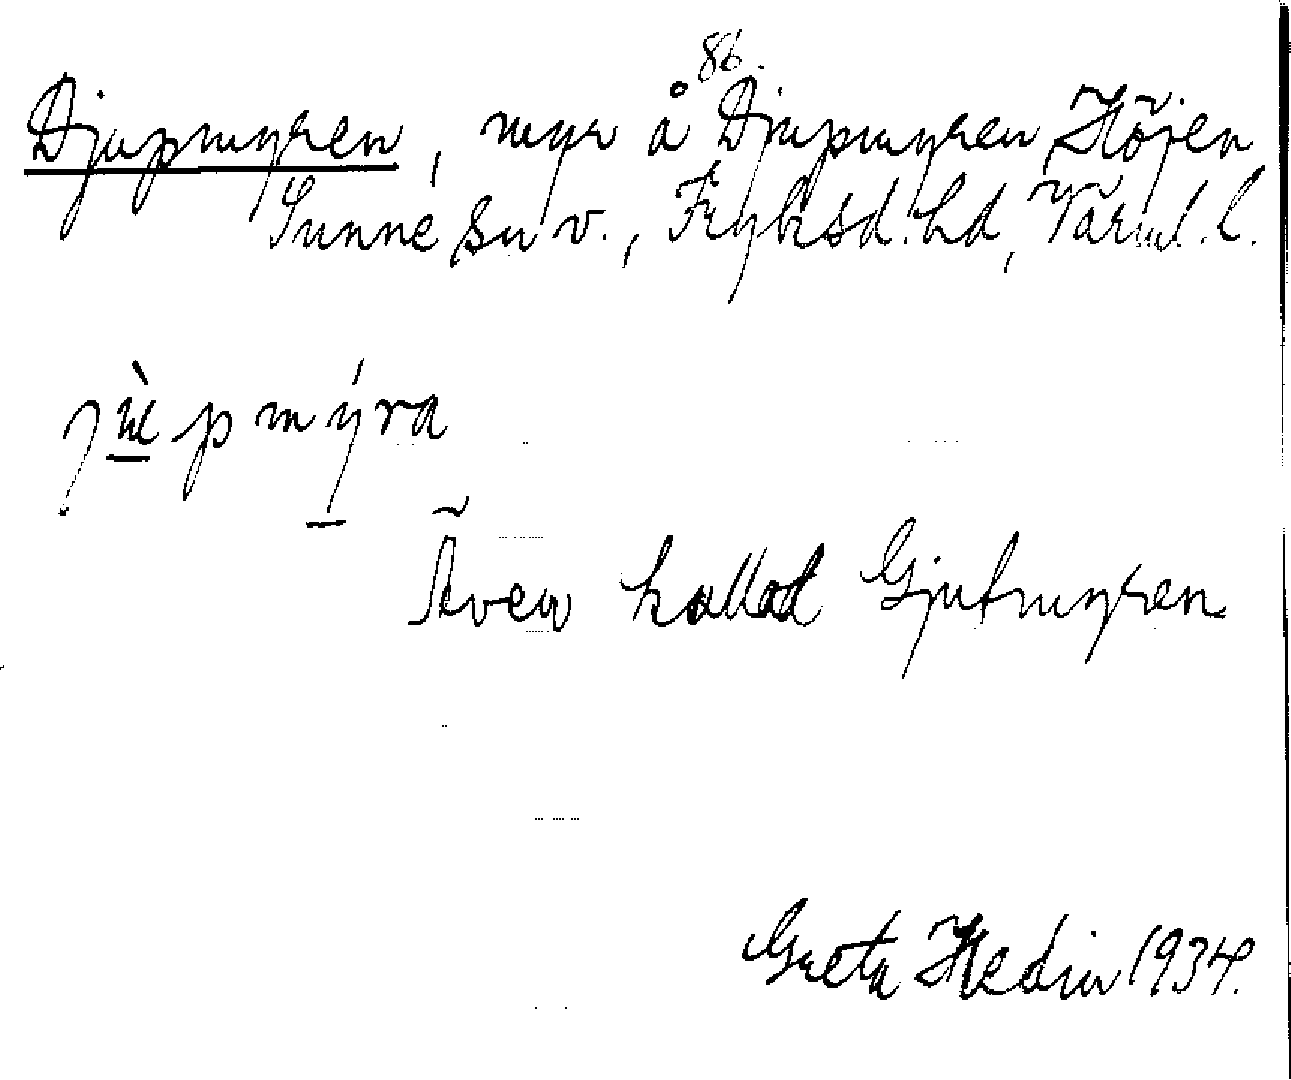 86.
Djupmyren, myr å Djupmyren Höjen
Sunne sn v., Fryksd. hd, Värml. l.
jùpmýra
Även kallad Gjutmyren
Greta Hedin 1934.